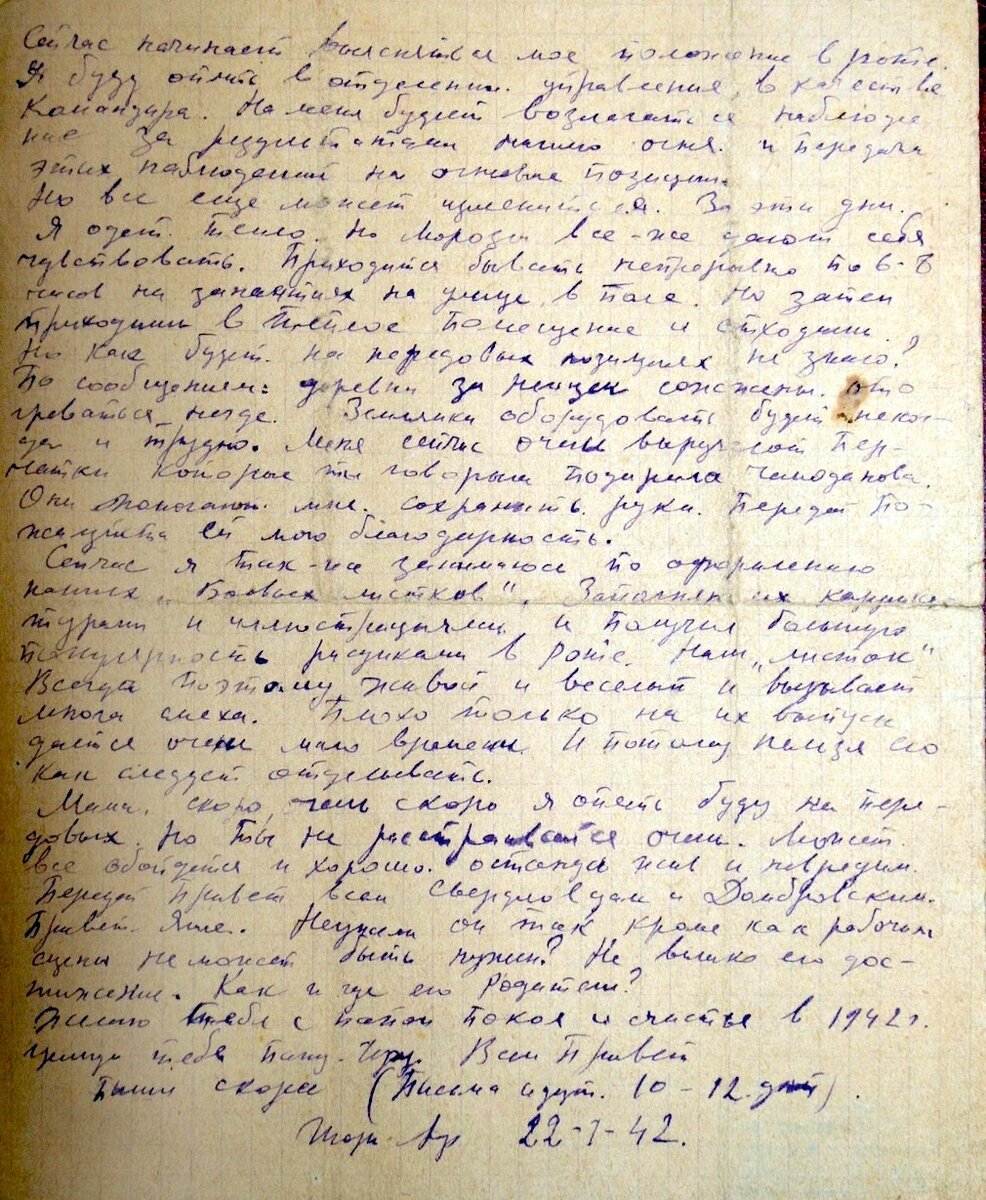 Сейчас начинает выясняться мое положение в роте.
Я буду опять в отделении управления, в качестве
командира. На меня будет возлагаться наблюде
ние за результатами нашего огня и передача
этих наблюдений на огневые позиции.
Но все еще может измениться. За эти дни.
Я одет тепло. Но морозы все-же дают себя
чувствовать. Приходится бывать непрерывно по 6-8
часов на занятиях на улице, в поле. Но затем
приходим в теплое помещение и отходим.
Но как будет на передовых позициях не знаю?
По сообщениям: деревни за немцем сожжены. ото
греваться негде. Землянки оборудовать будет неког
да и трудно. Меня сейчас очень выручают пер-
чатки которые ты говорила подарила Чемоданова.
Они помогают мне сохранить руки. Передай по-
жалуйста ей мою благодарность.
Сейчас я так-же занимаюсь по оформлению
наших „Боевых листков". Заполняю их каррика
турами и иллюстрациями и получил большую
популярность рисунками в роте. Наш „листок"
Всегда поэтому живой и веселый и вызывает
много смеха. Плохо только на их выпуск
дается очень мало времени. И потому нельзя его
как следует отделывать.
Мама, скоро, очень скоро я опять буду на пере-
довых. Но ты не расстраивайся очень. Может
все обойдется и хорошо. останусь жив и невредим.
Передай привет всем Свердловцам и Домбровским.
Привет Яше. Неужели он так кроме как рабочим
сцены не может быть нужен? Не велико его дос-
тижение. Как и где его родители?
Желаю тебе с папой покоя и счастья в 1942 г.
целую тебя папу Всем привет
Пиши скорее (Письма идут 10-12 дней).
22-I-42.